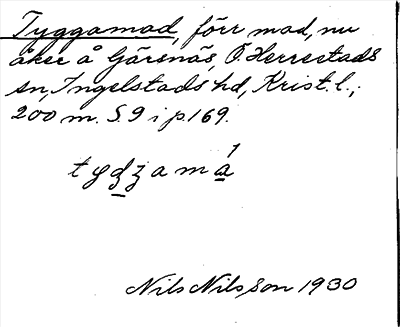 Tyggamad, förr mad, nu
åker å Gärsnäs, Ö. Herrestads
sn, Ingelstads hd, Krist. l.;
200 m. S. 9 i p. 169.
Nils Nilsson 1930